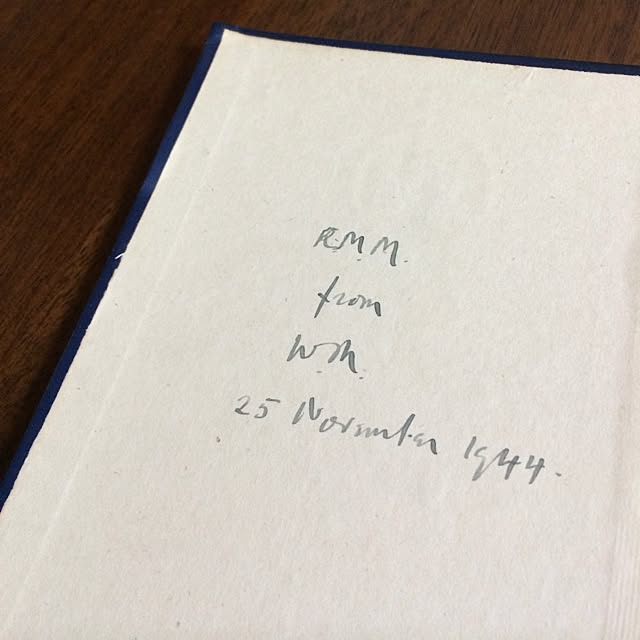 R.M.M.
from
W.M.
25 November 1944.